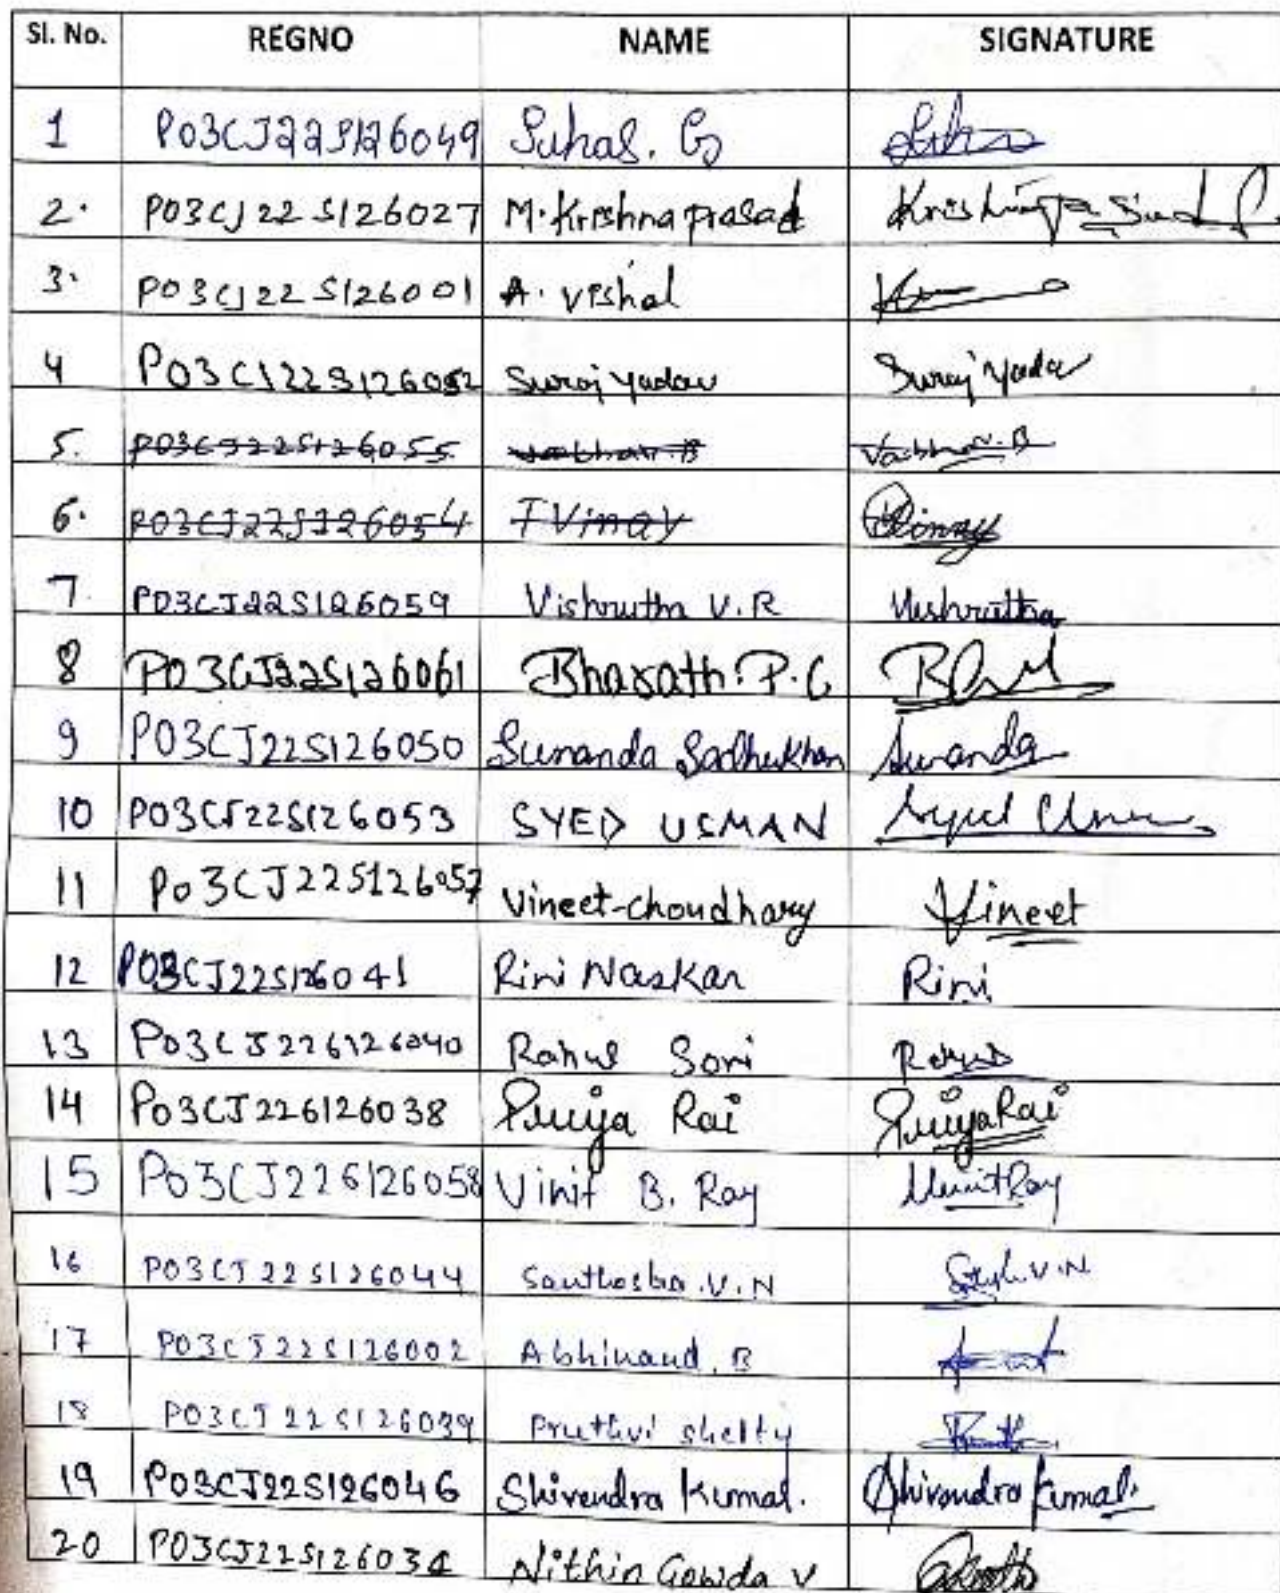 Sl. No. REGNO NAME SIGNATURE
1 P03CJ22S126049 Suhas. G Suhas
2. P03CJ22S126027 M. Krishna prasad Krishnaprasad
3. P03CJ22S126001 A. vishal
4 P03CJ22S126052 Suraj Yadav Suraj Yadav
5. P03CJ22S126055 Vaibhav B Vaibhav.B
6. P03CJ22S126054 T Vinay Vinay
7 P03CJ22S126059 Vishrutha V.R Vishrutha
8 P03CJ22S126061 Bharath. P. C
9 P03CJ22S126050 Sunanda Sadhukhan Sunanda
10 P03CJ22S126053 SYED USMAN Syed Usman
11 P03CJ22S126057 Vineet-choudhary Vineet
12 P03CJ22S126041 Rini Naskar Rini
13 P03CJ226126040 Rahul Soni Rahul
14 P03CJ226126038 Puija Rai Puija Rai
15 P03CJ226126058 Vinit B. Ray Vinit Ray
16 P03CJ22S126044 Santhosha.V.N V.N
17 P03CJ22S126002 Abhinand.B
18 P03CJ22S126039 Pruthvi shetty
19 P03CJ22S126046 Shivendra Kumal. Shivendra Kumal.
20 P03CJ22S126034 Nithin Gowda V